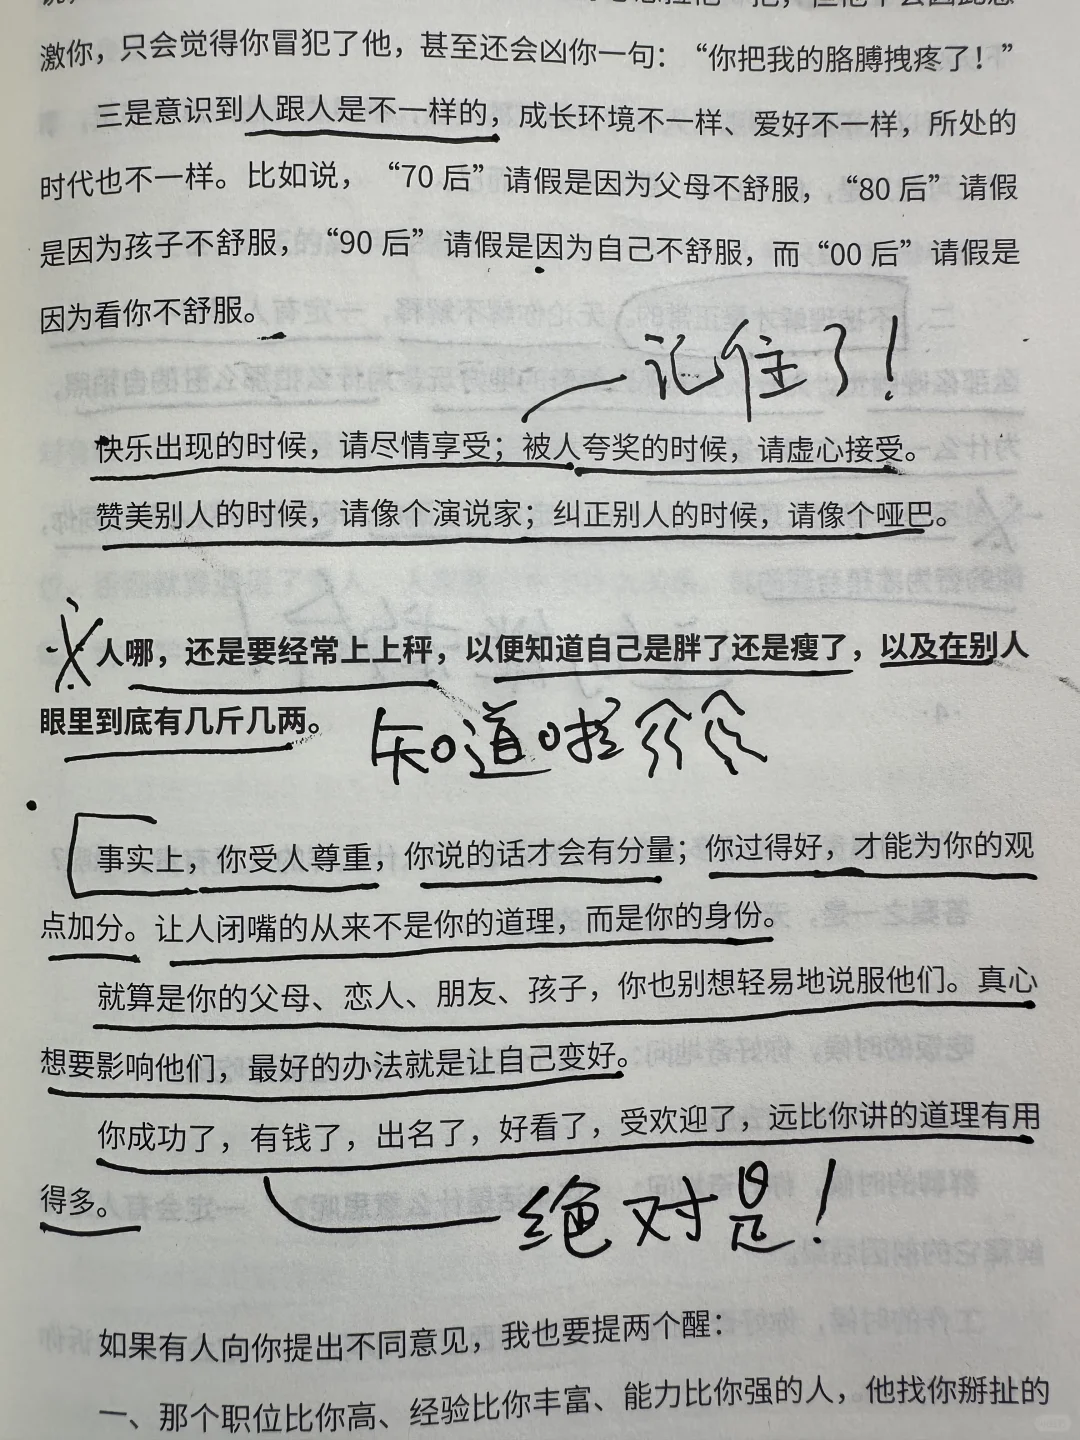 激你，只会觉得你冒犯了他，甚至还会凶你一句：“你把我的胳膊拽疼了！”
三是意识到人跟人是不一样的，成长环境不一样、爱好不一样，所处的
时代也不一样。比如说，“70 后”请假是因为父母不舒服，“80 后”请假
是因为孩子不舒服，“90 后”请假是因为自己不舒服，而“00 后”请假是
因为看你不舒服。
记住了！
快乐出现的时候，请尽情享受；被人夸奖的时候，请虚心接受。
赞美别人的时候，请像个演说家；纠正别人的时候，请像个哑巴。
人哪，还是要经常上上秤，以便知道自己是胖了还是瘦了，以及在别人
眼里到底有几斤几两。
知道啦
事实上，你受人尊重，你说的话才会有分量；你过得好，才能为你的观
点加分。让人闭嘴的从来不是你的道理，而是你的身份。
就算是你的父母、恋人、朋友、孩子，你也别想轻易地说服他们。真心
想要影响他们，最好的办法就是让自己变好。
你成功了，有钱了，出名了，好看了，受欢迎了，远比你讲的道理有用
得多。
绝对是！
如果有人向你提出不同意见，我也要提两个醒：
一、那个职位比你高、经验比你丰富、能力比你强的人，他找你掰扯的